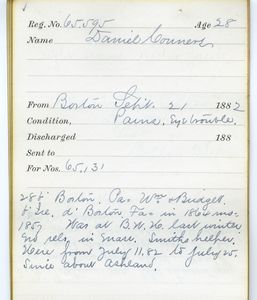 Reg. No. 65,595 Age 28
Name Daniel Conners
From Boston Sept. 21 1882
Condition, Pains, Eye trouble.
Discharged 188
Sent to
For Nos. 65,131
28 b. Boston. Pa. Wm & Bridget.
b. Ire. d. Boston Fa in 1864 mo.
1857 Was at B.W.H. last winter
No rels. in Mass. Smiths helper.
Here from July 11.82 to July 25.
Since about Ashland.